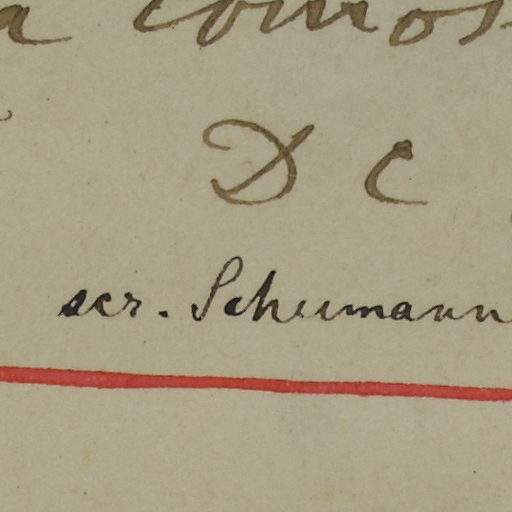 a comos
D C
scr. Schumann